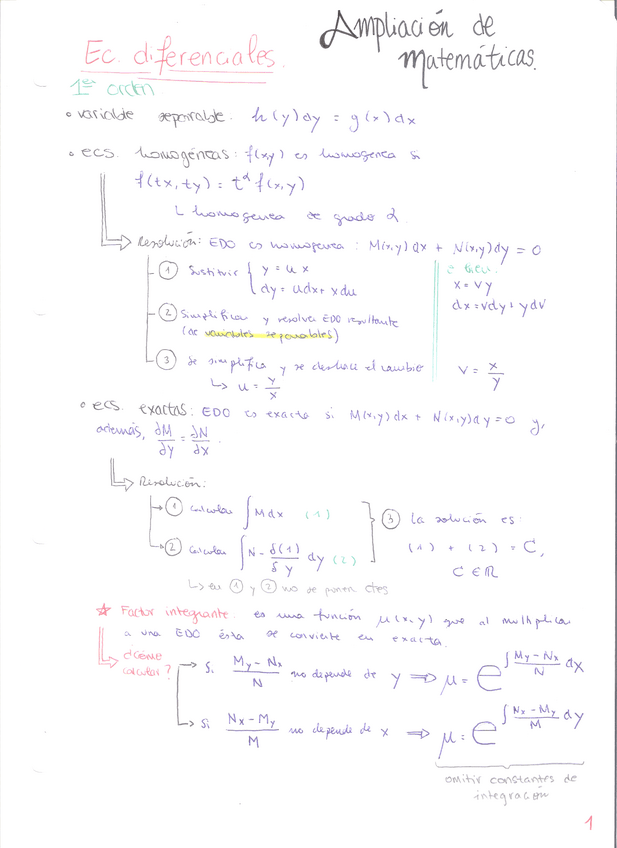 Ampliación de
Matemáticas.
Ec. diferenciales.
1er orden
• variable separable: h(y)dy = g(x)dx
• ecs. homogéneas: f(x,y) es homogenea si
f(tx, ty) = t^α f(x,y)
↳ homogenea de grado α.
Resolución: EDO es homogenea: M(x,y)dx + N(x,y)dy = 0
① Sustituir { y = ux
dy = udx + xdu
o bien:
x = vy
dx = vdy + ydv
② Simplificar y resolver EDO resultante
(de variables separables)
③ Se simplifica y se deshace el cambio
↳ u = y/x
v = x/y
• ecs. exactas: EDO es exacta si M(x,y)dx + N(x,y)dy = 0 y,
además, ∂M/∂y = ∂N/∂x.
Resolución:
① Calcular ∫ M dx (1)
② Calcular ∫ N - δ(1)/δy dy (2)
③ La solución es:
(1) + (2) = C,
C ∈ ℝ
↳ en ① y ② no se ponen ctes
☆ Factor integrante: es una función μ(x,y) que al multiplicar
a una EDO ésta se convierte en exacta.
¿Cómo
calcular?
→ Si (My - Nx)/N no depende de y ⇒ μ = e^(∫ (My - Nx)/N dx)
↳ Si (Nx - My)/M no depende de x ⇒ μ = e^(∫ (Nx - My)/M dy)
omitir constantes de
integración
1